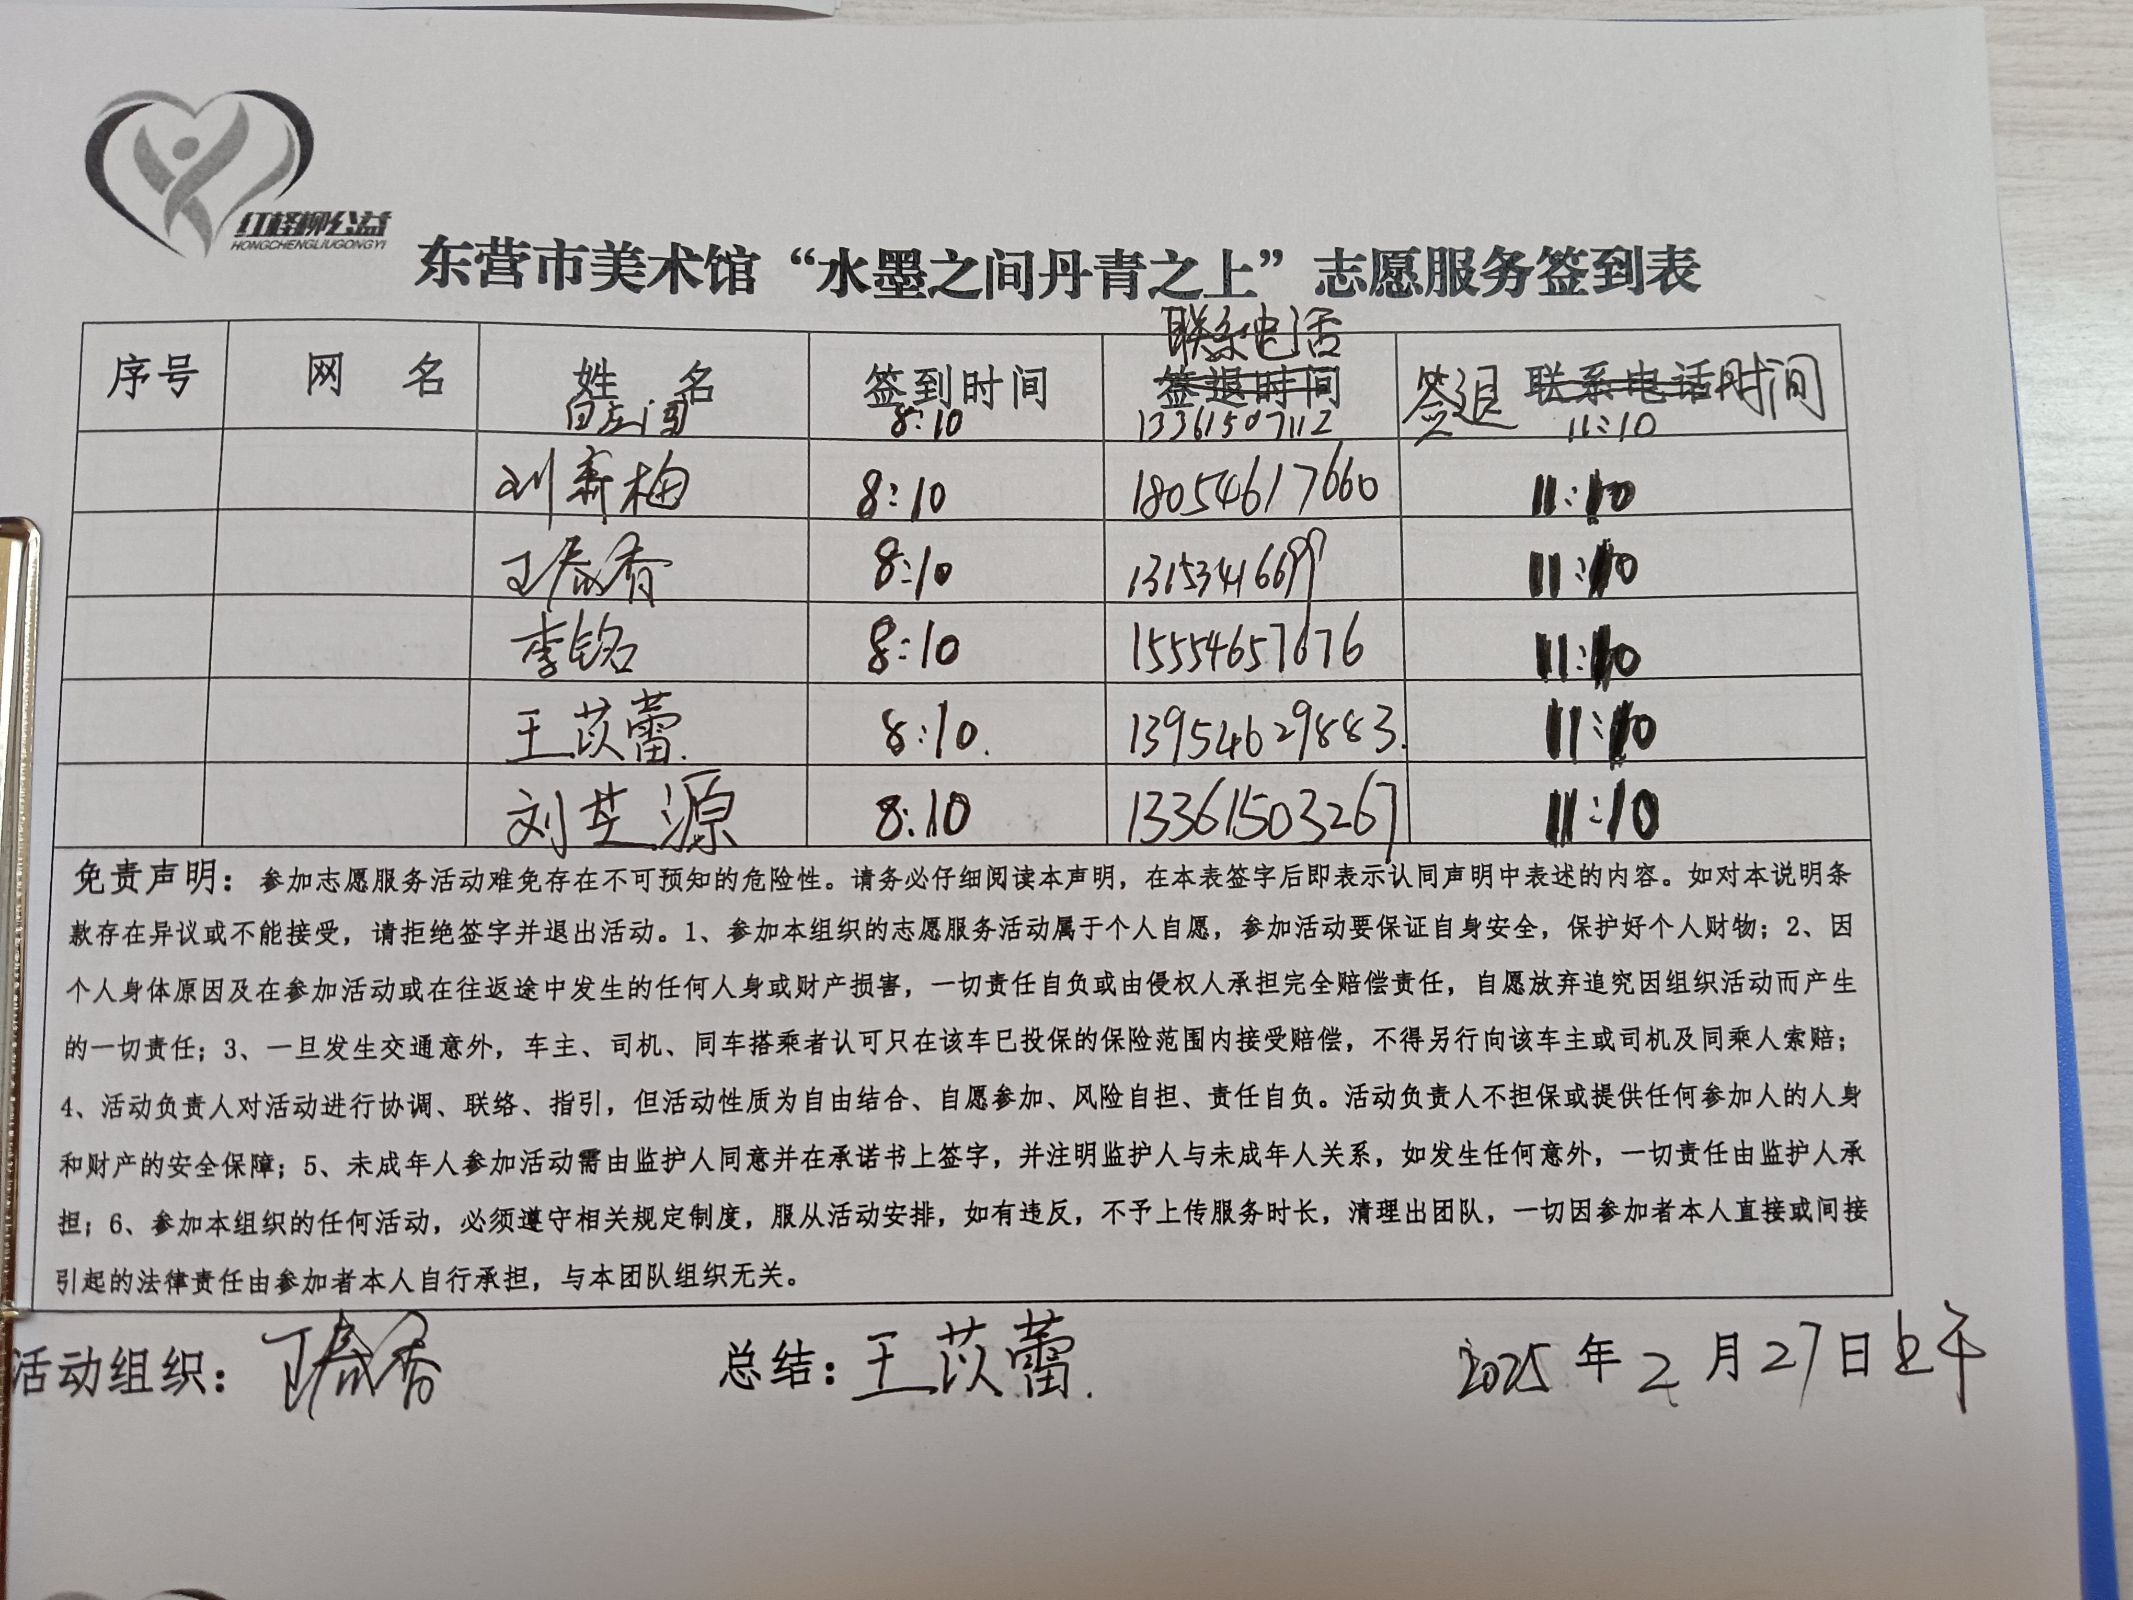 红柽柳公益
HONGCHENGLIUGONGYI
东营市美术馆“水墨之间丹青之上”志愿服务签到表
联系电话
序号 网 名 姓 名 签到时间 签退时间 签退 联系电话时间
8:10 13361507112 11:10
刘春梅 8:10 18054617660 11:10
丁春香 8:10 13153416699 11:10
李铭 8:10 15554657676 11:10
王苡蕾. 8:10. 13954629883. 11:10
刘芝源 8:10 13361503267 11:10
免责声明：参加志愿服务活动难免存在不可预知的危险性。请务必仔细阅读本声明，在本表签字后即表示认同声明中表述的内容。如对本说明条
款存在异议或不能接受，请拒绝签字并退出活动。1、参加本组织的志愿服务活动属于个人自愿，参加活动要保证自身安全，保护好个人财物；2、因
个人身体原因及在参加活动或在往返途中发生的任何人身或财产损害，一切责任自负或由侵权人承担完全赔偿责任，自愿放弃追究因组织活动而产生
的一切责任；3、一旦发生交通意外，车主、司机、同车搭乘者认可只在该车已投保的保险范围内接受赔偿，不得另行向该车主或司机及同乘人索赔；
4、活动负责人对活动进行协调、联络、指引，但活动性质为自由结合、自愿参加、风险自担、责任自负。活动负责人不担保或提供任何参加人的人身
和财产的安全保障；5、未成年人参加活动需由监护人同意并在承诺书上签字，并注明监护人与未成年人关系，如发生任何意外，一切责任由监护人承
担；6、参加本组织的任何活动，必须遵守相关规定制度，服从活动安排，如有违反，不予上传服务时长，清理出团队，一切因参加者本人直接或间接
引起的法律责任由参加者本人自行承担，与本团队组织无关。
活动组织：丁春香 总结：王苡蕾. 2025年2月27日上午